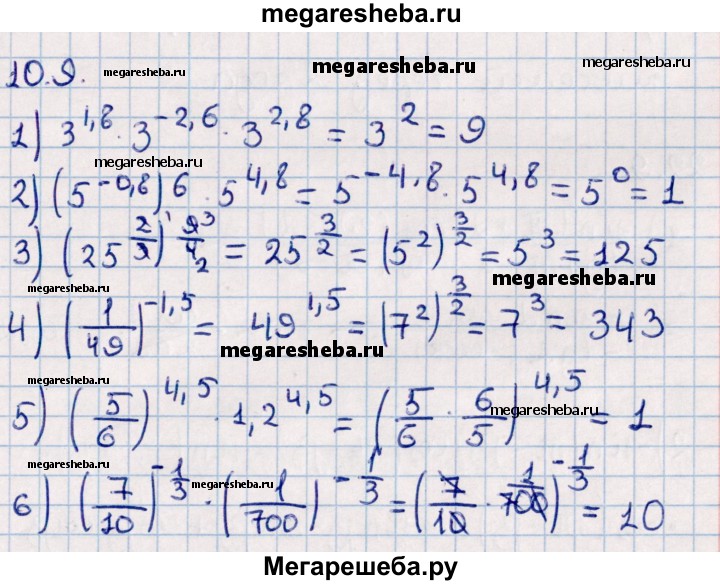 megaresheba.ru
10.9. megaresheba.ru megaresheba.ru
1) 3^{1,8} · 3^{-2,6} · 3^{2,8} = 3^2 = 9
megaresheba.ru
2) (5^{-0,8})^6 · 5^{4,8} = 5^{-4,8} · 5^{4,8} = 5^0 = 1
3) (25^{2/3})^{9/4} = 25^{3/2} = (5^2)^{3/2} = 5^3 = 125
megaresheba.ru
4) (1/49)^{-1,5} = 49^{1,5} = (7^2)^{3/2} = 7^3 = 343
megaresheba.ru
megaresheba.ru
5) (5/6)^{4,5} · 1,2^{4,5} = (5/6 · 6/5)^{4,5} = 1
megaresheba.ru
megaresheba.ru megaresheba.ru
6) (7/10)^{-1/3} · (1/700)^{-1/3} = (7/10 · 1/700)^{-1/3} = 10
Мегарешеба.ру